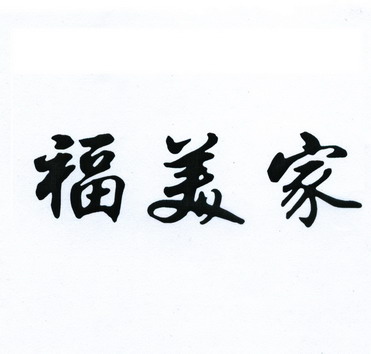 福美家